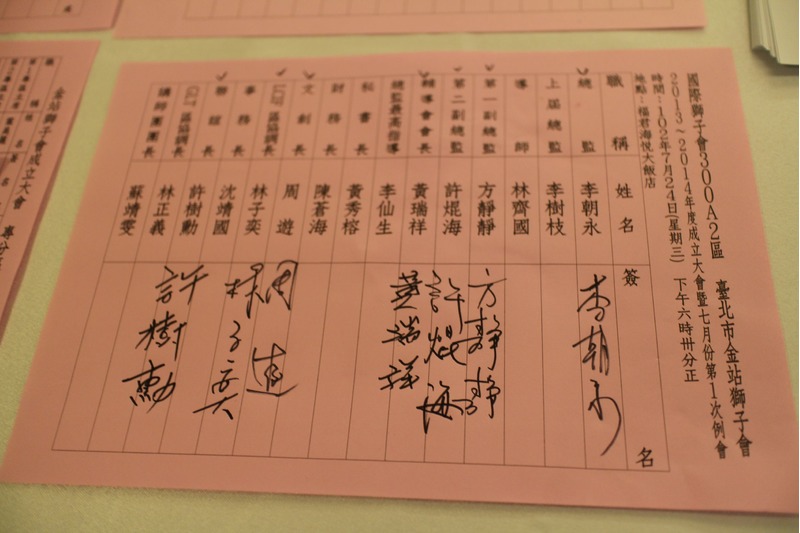 國際獅子會300A2區 臺北市金站獅子會
2013~2014年度成立大會暨七月份第1次例會
時間：102年7月24日(星期三) 下午六時卅分正
地點：楊君海悅大飯店
職稱 姓名 簽名
總監 李朝永 李朝永
上屆總監 李樹枝
導師 林齊國
第一副總監 方靜靜 方靜靜
第二副總監 許焜海 許焜海
輔導會會長 黃瑞祥 黃瑞祥
總監最高指導 李仙生
秘書長 黃秀榕
財務長 陳蒼海
文創長 周遊 周遊
LCIF區協調長 林子奕 林子奕
事務長 沈靖國
聯誼長 許樹勳 許樹勳
GLT區協調長 林正義
講師團團長 蘇靖雯
金站獅子會成立大會